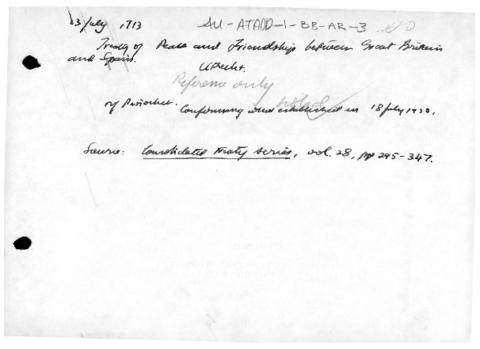 13 July, 1713 AU-ATADD-1-BB-AR-3
Treaty of Peace and Friendship between Great Britain
and Spain.
Utrecht.
Reference only
of
Confirming and established in 18 July 1930.
Source: Consolidated treaty series, vol. 28, pp 295-347.